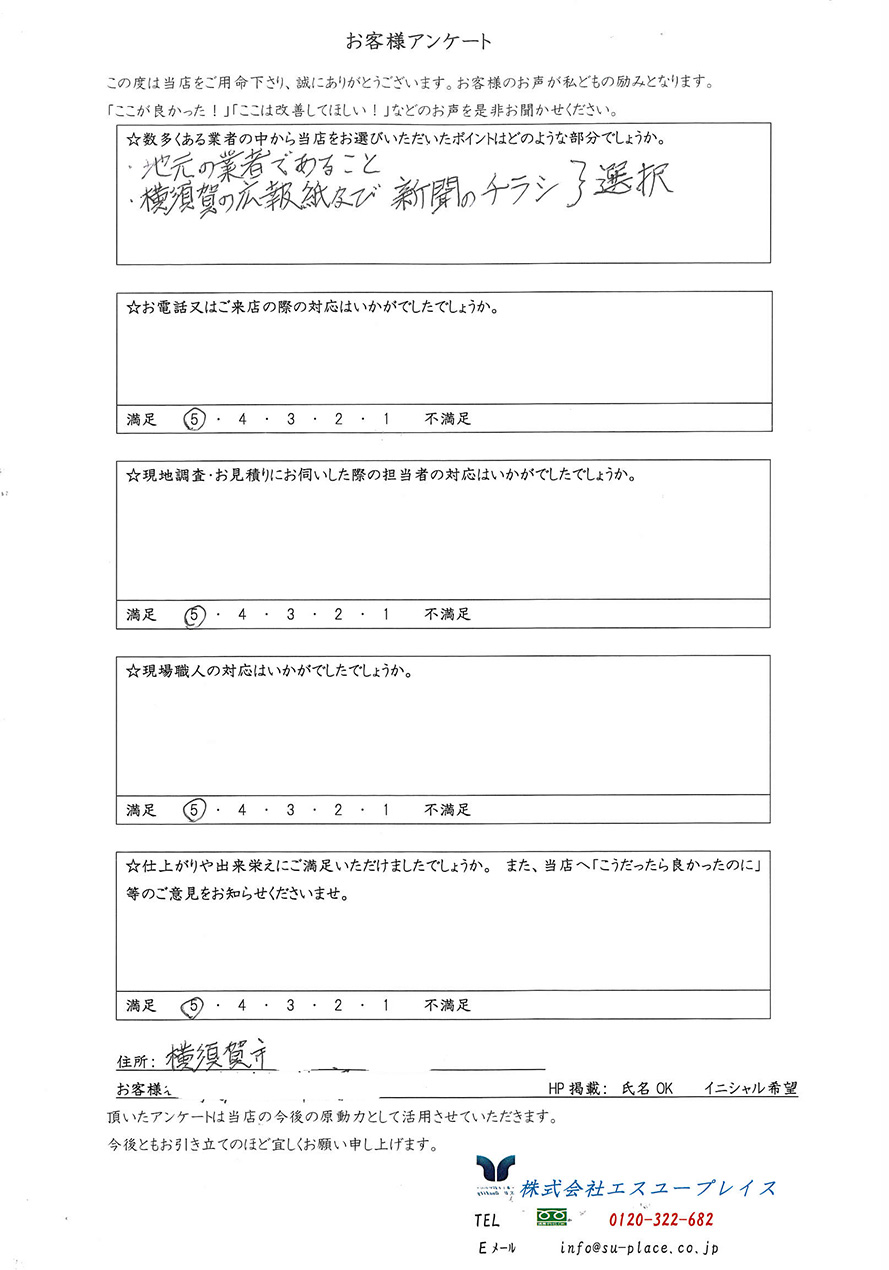 お客様アンケート
この度は当店をご用命下さり、誠にありがとうございます。お客様のお声が私どもの励みとなります。
「ここが良かった!」「ここは改善してほしい!」などのお声を是非お聞かせください。
☆数多くある業者の中から当店をお選びいただいたポイントはどのような部分でしょうか。
・地元の業者であること
・横須賀の広報紙及び 新聞のチラシ } 選択
☆お電話又はご来店の際の対応はいかがでしたでしょうか。
満足 5 ・ 4 ・ 3 ・ 2 ・ 1 不満足
☆現地調査・お見積りにお伺いした際の担当者の対応はいかがでしたでしょうか。
満足 5 ・ 4 ・ 3 ・ 2 ・ 1 不満足
☆現場職人の対応はいかがでしたでしょうか。
満足 5 ・ 4 ・ 3 ・ 2 ・ 1 不満足
☆仕上がりや出来栄えにご満足いただけましたでしょうか。 また、当店へ「こうだったら良かったのに」
等のご意見をお知らせくださいませ。
満足 5 ・ 4 ・ 3 ・ 2 ・ 1 不満足
住所: 横須賀市
お客様 HP掲載: 氏名OK イニシャル希望
頂いたアンケートは当店の今後の原動力として活用させていただきます。
今後ともお引き立てのほど宜しくお願い申し上げます。
株式会社エスユープレイス
TEL 0120-322-682
Eメール info@su-place.co.jp